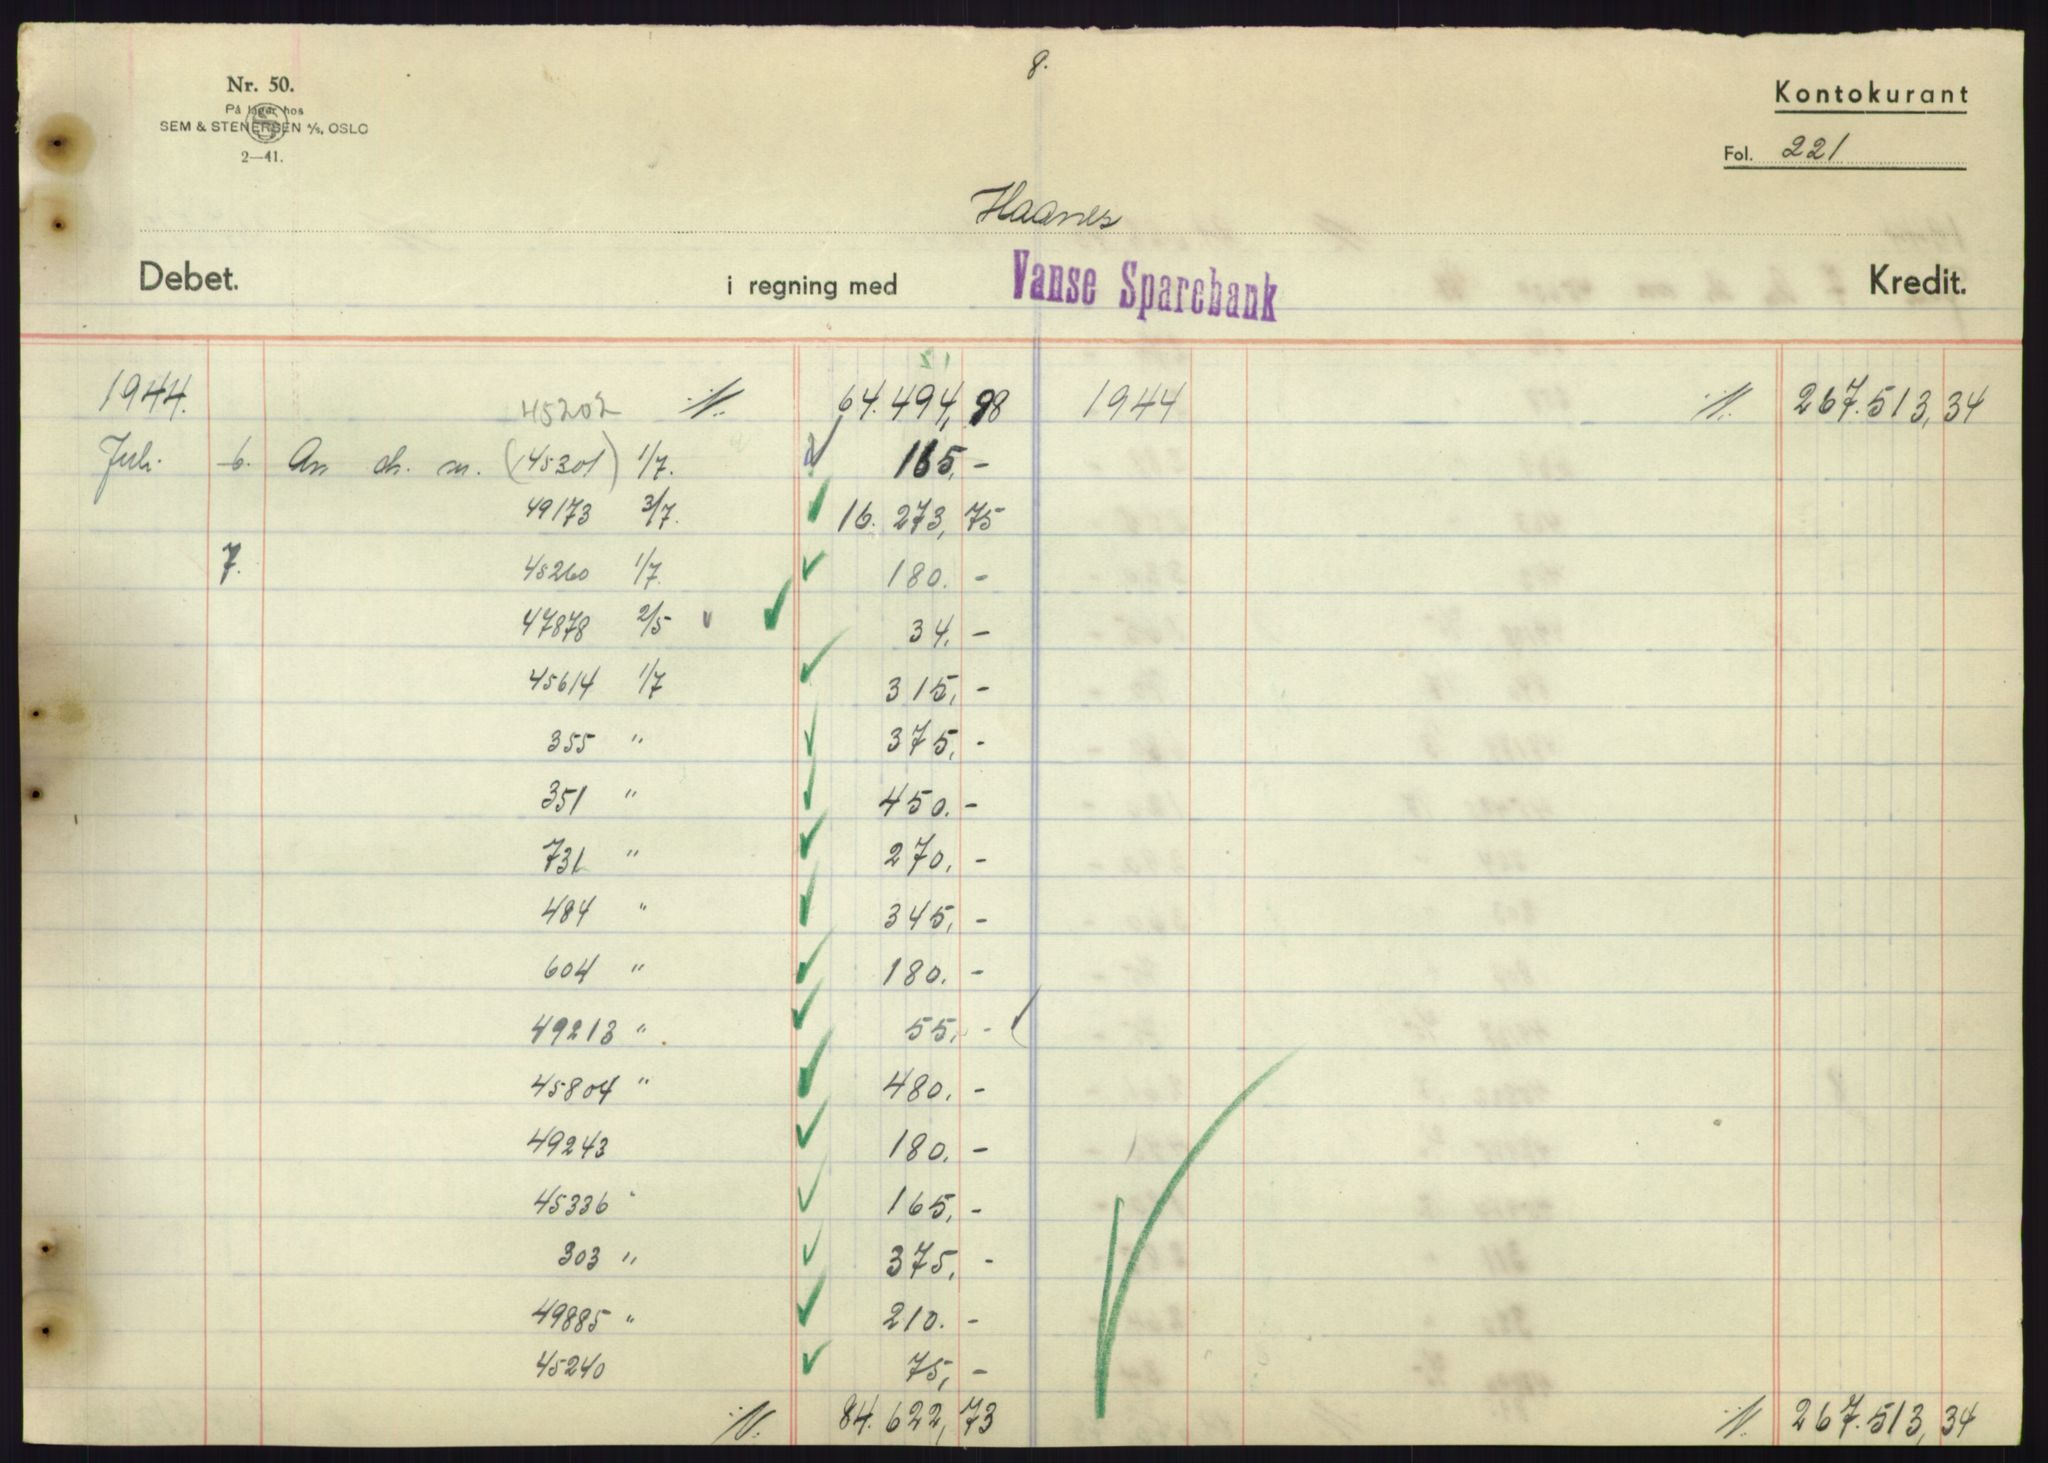 8.
Nr. 50.
På lager hos
SEM & STENERSEN A/S, OSLO
2—41.
Kontokurant
Fol. 221
Haanes
Debet. i regning med Vanse Sparebank Kredit.
21
1944. 45202 ·/. 64.494,98 1944 ·/. 267.513,34
Juli 6. An ch. m. (45301) 1/7. 165,-
49173 3/7. 16.273,75
7. 45260 1/7. 180.-
47878 2/5 34.-
45614 1/7 315,-
355 " 375,-
351 " 450.-
731 " 270,-
484 " 345,-
604 " 180.-
49213 " 55,-
45804 " 480,-
49243 180.-
45336 " 165,-
303 " 375,-
49885 " 210.-
45240 75,-
·/. 84.622,73 ·/. 267.513,34